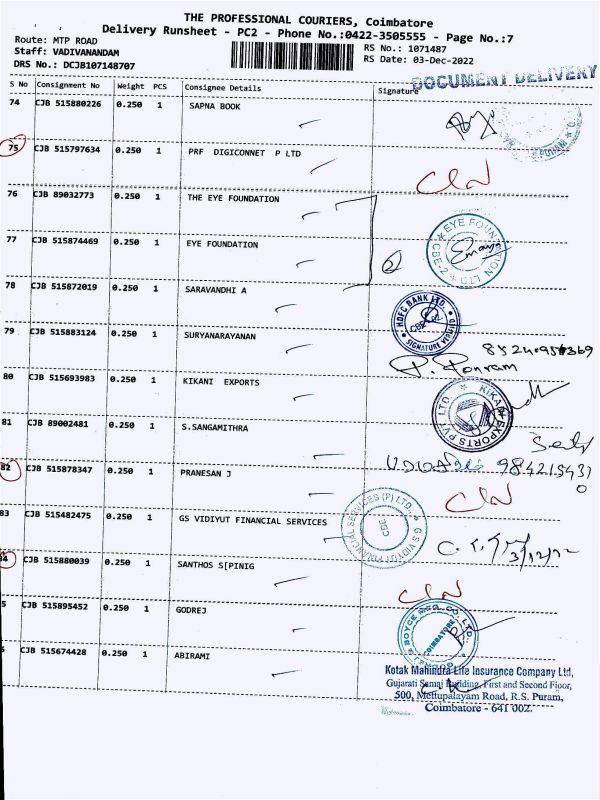 THE PROFESSIONAL COURIERS, Coimbatore
Delivery Runsheet - PC2 - Phone No.:0422-3505555 - Page No.:7
Route: MTP ROAD
RS No.: 1071487
Staff: VADIVANANDAM
RS Date: 03-Dec-2022
DRS No.: DCJB107148707
DOCUMENT DELIVERY
S No Consignment No Weight PCS Consignee Details Signature
74 CJB 515880226 0.250 1 SAPNA BOOK
75 CJB 515797634 0.250 1 PRF DIGICONNET P LTD
76 CJB 89032773 0.250 1 THE EYE FOUNDATION
77 CJB 515874469 0.250 1 EYE FOUNDATION
EYE FOUNDATION LTD
CBE-2
78 CJB 515872019 0.250 1 SARAVANDHI A
HDFC BANK LTD.
SIGNATURE VERIFIED
79 CJB 515883124 0.250 1 SURYANARAYANAN
P. Ponram
80 CJB 515693983 0.250 1 KIKANI EXPORTS
KIKANI EXPORTS PVT. LTD.
81 CJB 89002481 0.250 1 S.SANGAMITHRA
82 CJB 515878347 0.250 1 PRANESAN J
83 CJB 515482475 0.250 1 GS VIDIYUT FINANCIAL SERVICES
G S VIDIYUT FINANCIAL SERVICES (P) LTD.,
CBE
3/12/22
84 CJB 515880039 0.250 1 SANTHOS S[PINIG
5 CJB 515895452 0.250 1 GODREJ
BOYCE MFG. CO. LTD.
COIMBATORE
CJB 515674428 0.250 1 ABIRAMI
Kotak Mahindra Life Insurance Company Ltd,
Gujarati Samaj Building, First and Second Floor,
500, Mettupalayam Road, R.S. Puram,
Coimbatore - 641 002.